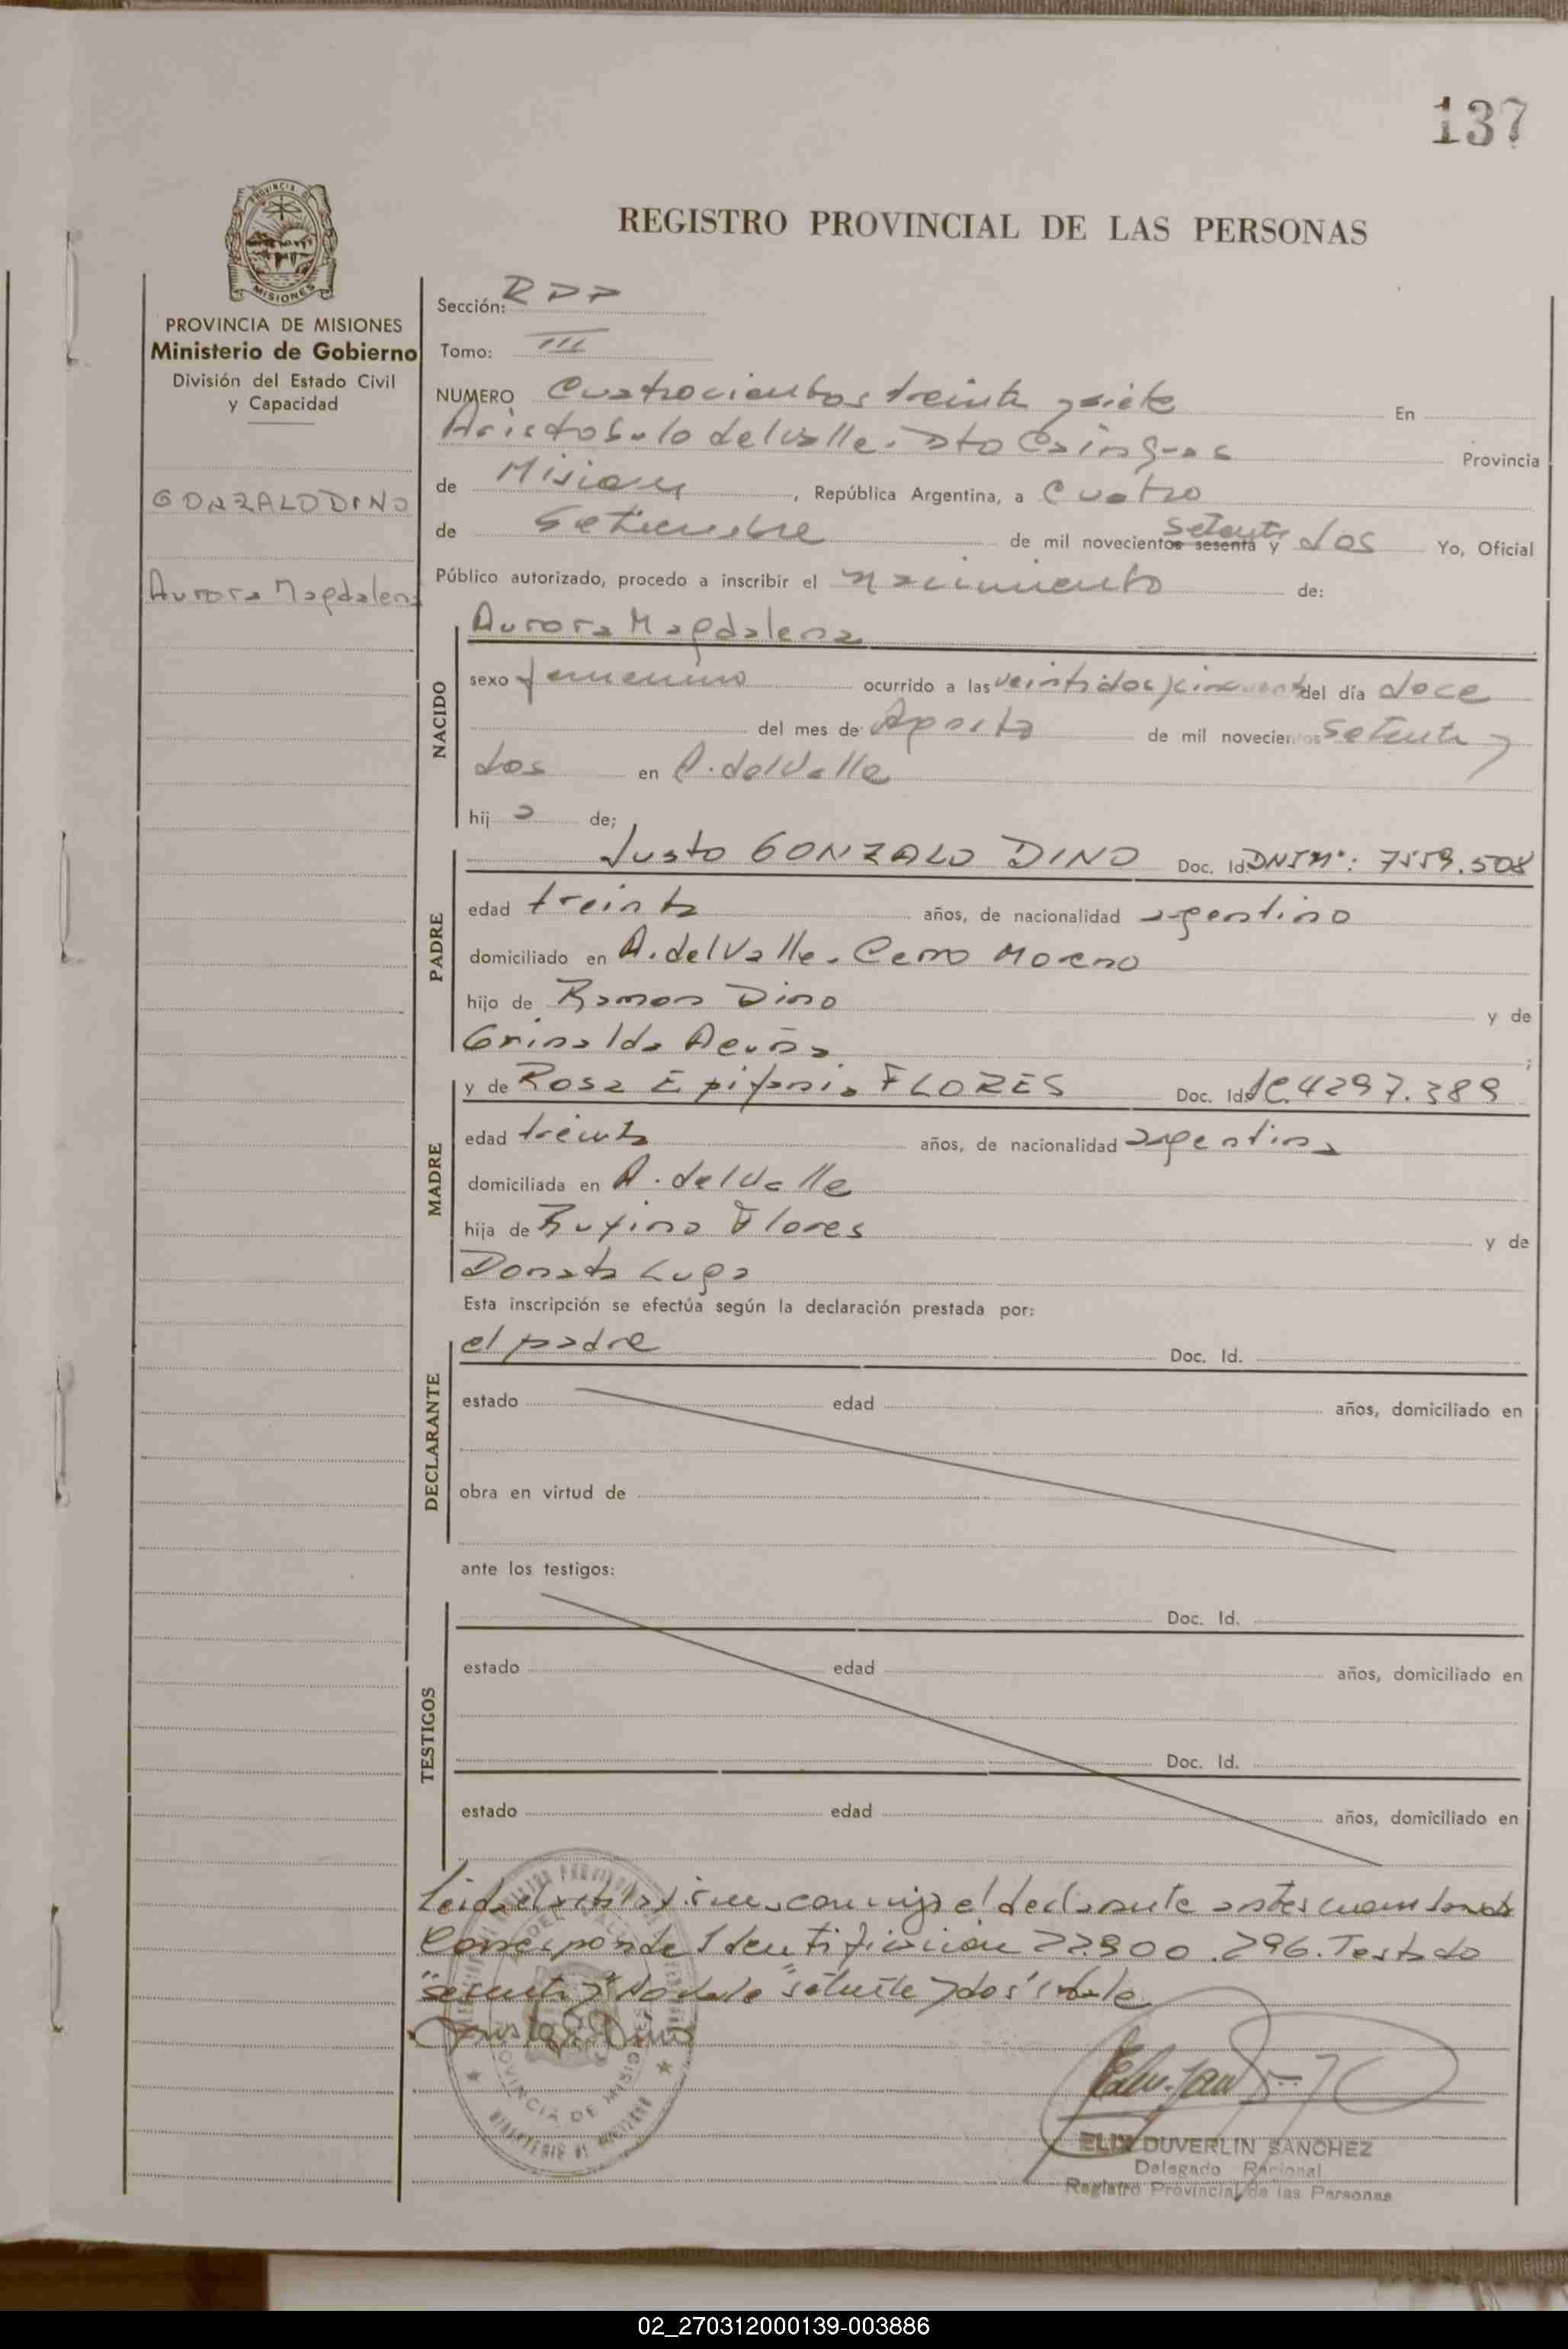 137
REGISTRO PROVINCIAL DE LAS PERSONAS
PROVINCIA DE MISIONES
Ministerio de Gobierno
División del Estado Civil
y Capacidad
GONZALO DINO
Aurora Magdalena
Sección:
Tomo: III
NUMERO Cuatrocientos treinta y siete En
Aristobulo del Valle. Dto Cainguas Provincia
de Misiones, República Argentina, a Cuatro
de Setiembre de mil novecientos sesenta y setenta dos Yo, Oficial
Público autorizado, procedo a inscribir el nacimiento de:
NACIDO
Aurora Magdalena
sexo femenino ocurrido a las veintidos y cincuenta del día doce
del mes de Agosto de mil novecientos setenta y
dos en A. del Valle
hij a de;
PADRE
Justo GONZALO DINO Doc. Id. DNI Nº: 7559.508
edad treinta años, de nacionalidad argentino
domiciliado en A. del Valle. Cerro Moreno
hijo de Ramon Dino y de
Grinalda Acuña ;
MADRE
y de Rosa Epifania FLORES Doc. Id. LC. 4297.389
edad treinta años, de nacionalidad argentina
domiciliada en A. del Valle
hija de Rufino Flores y de
Donata Lugo
Esta inscripción se efectúa según la declaración prestada por:
DECLARANTE
el padre Doc. Id.
estado edad años, domiciliado en
obra en virtud de
ante los testigos:
TESTIGOS
Doc. Id.
estado edad años, domiciliado en
Doc. Id.
estado edad años, domiciliado en
Leida el acta la firma conmigo el declarante antes
Corresponde Identificacion 22.900.296. Testado
"sesenta y" "setenta y dos" vale
Justo G Dino
PROVINCIA DE MISIONES
ELIX DUVERLIN SANCHEZ
Delegado
Registro Provincial de las Personas
02_270312000139-003886